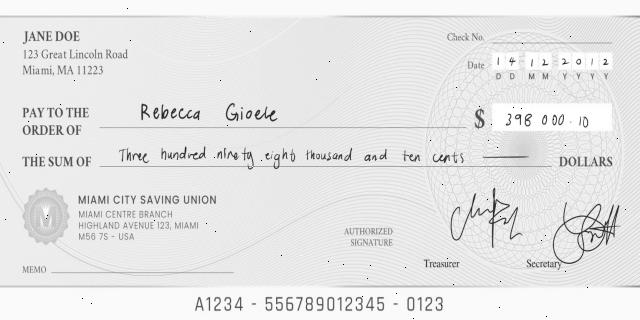 JANE DOE
123 Great Lincoln Road
Miami, MA 11223
Check No.
Date 1 4 1 2 2 0 1 2
D D M M Y Y Y Y
PAY TO THE ORDER OF Rebecca Gioele $ 398 000.10
THE SUM OF Three hundred ninety eight thousand and ten cents DOLLARS
MIAMI CITY SAVING UNION
MIAMI CENTRE BRANCH
HIGHLAND AVENUE 123, MIAMI
M56 7S - USA
AUTHORIZED
SIGNATURE
Treasurer Secretary
MEMO
A1234 - 556789012345 - 0123